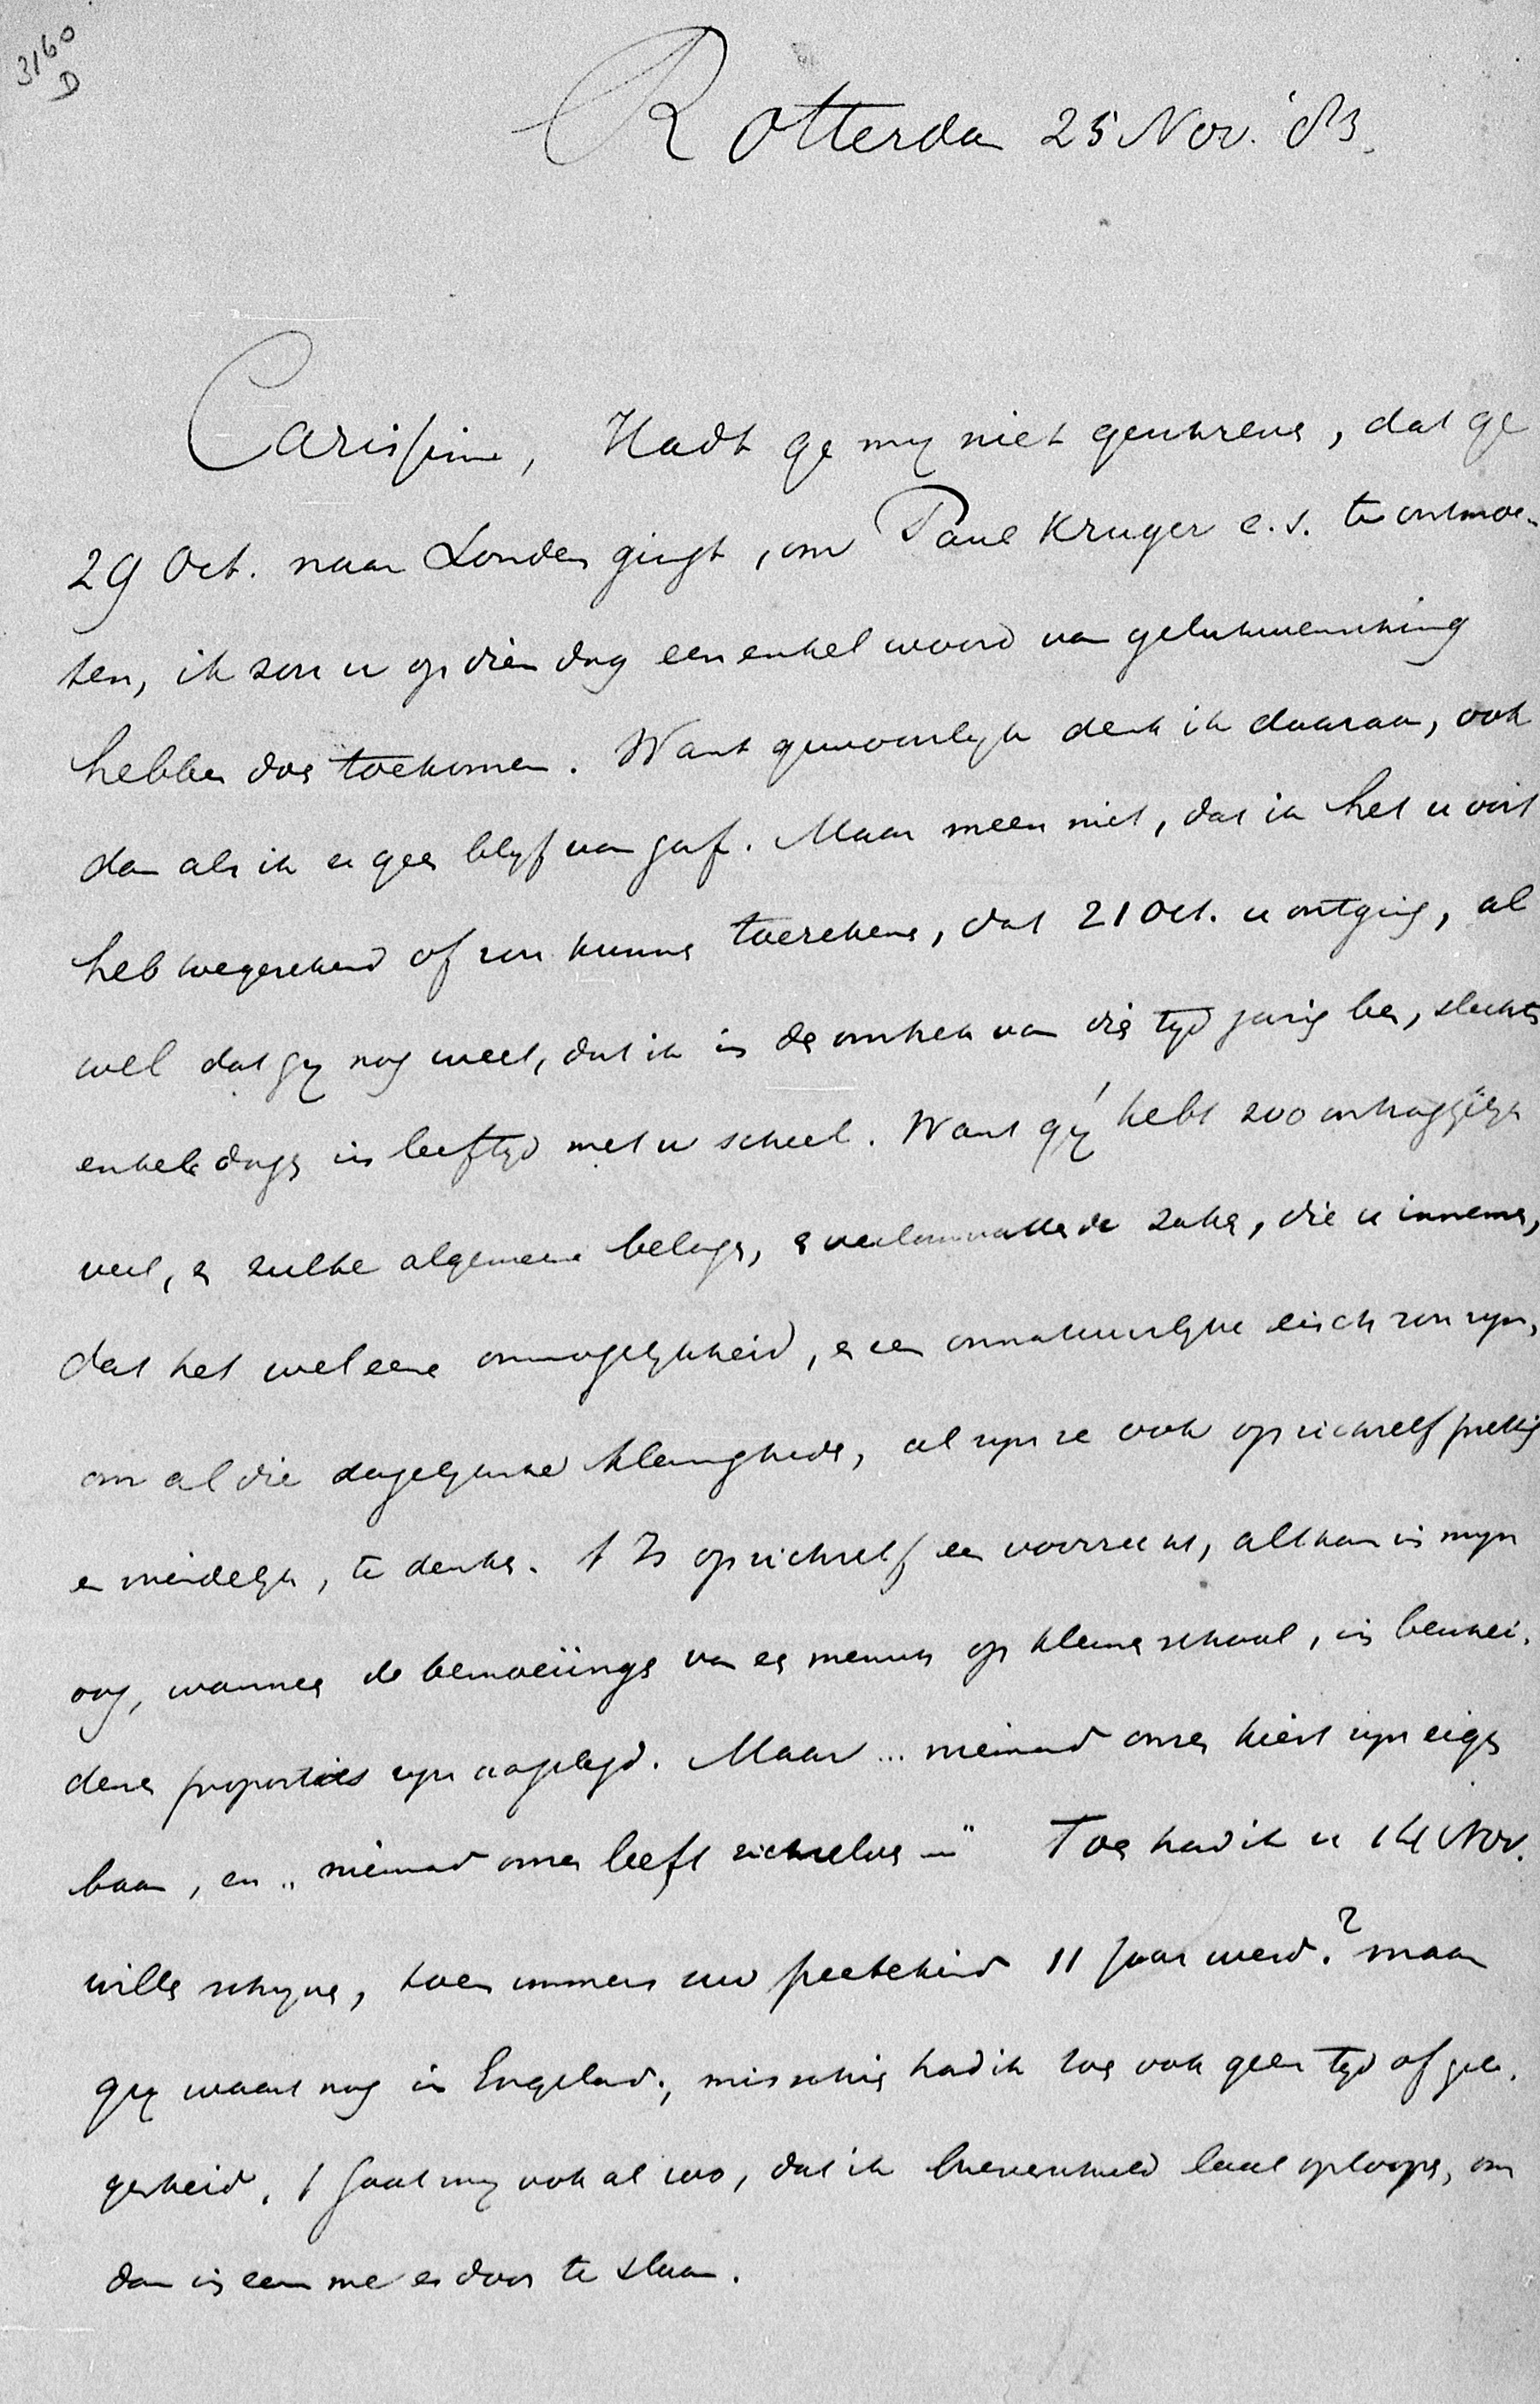 3160
D
Rotterdam 25 Nov. '83.
Carissime, Hadt ge my niet geschreven, dat ge
29 Oct. naar Londen gingt, om Paul Kruger c.s. te ontmoe-
ten, ik zou u op dien dag een enkel woord van gelukwensching
hebben doen toekomen. Want gewoonlyk denk ik daaraan, ook
dan als ik er geen blyk van gaf. Maar meen niet, dat ik het u ooit
heb toegerekend of zou kunnen toerekenen, dat 21 Oct. u ontging, al
wel dat gy nog weet, dat ik in de omtrek van die tyd jarig ben, slechts
enkele dagen in leeftyd met u scheel. Want gy hebt zoo ontzaggelyk
veel, en zulke algemeene belangen, en veelomvattende zaken, die u innemen,
dat het wel eene onmogelykheid, en een onnatuurlyke eisch zou zyn,
om al die dagelyksche kleinigheden, al zyn ze ook op zichzelf prettig
en vriendelyk, te denken. 't Is op zichzelf een voorrecht, althans in myn
oog, wanneer de bemoeiingen van een mensch op kleine schaal, in beschei-
dene proporties zyn aangelegd. Maar ... niemand onzer kiest zyn eigen
baan, en „niemand onzer leeft zichzelven —" Toen had ik u 14 Nov.
willen schryven, toen immers uw petekind 11 jaar werd? maar
gy waart nog in Engeland; misschien had ik toen ook geen tyd of gele-
genheid. 't Gaat my ook al zoo, dat ik brievenschuld laat oploopen, om
dan in eens me er door te slaan.